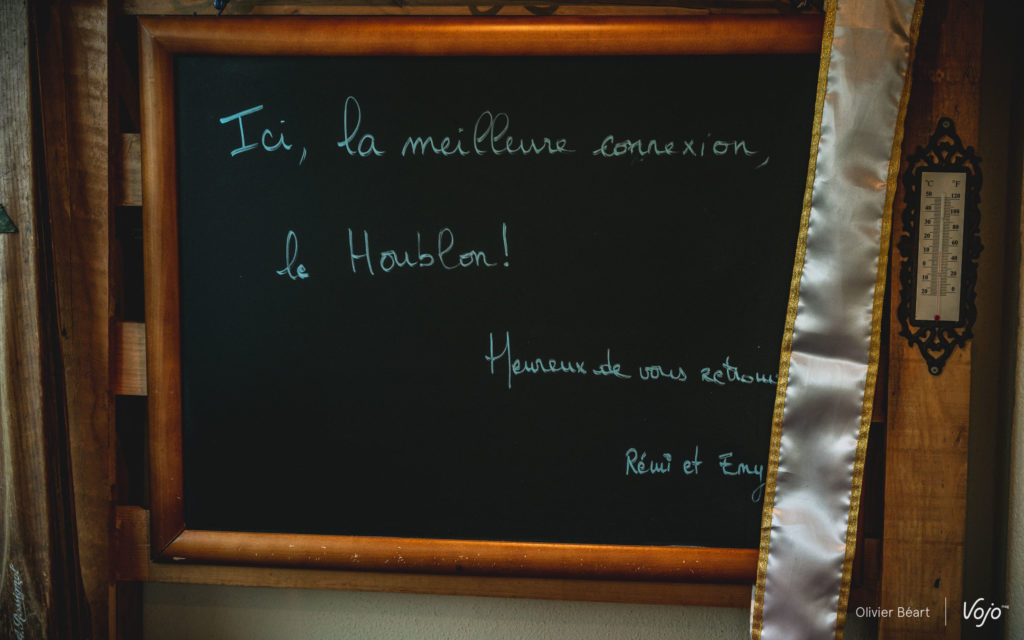 Ici, la meilleure connexion,
le Houblon!
Heureux de vous
Rémi et Emy
°C °F
50 120
40 100
30 80
20 60
10 40
0 20
10 0
20
Olivier Béart | Vojo